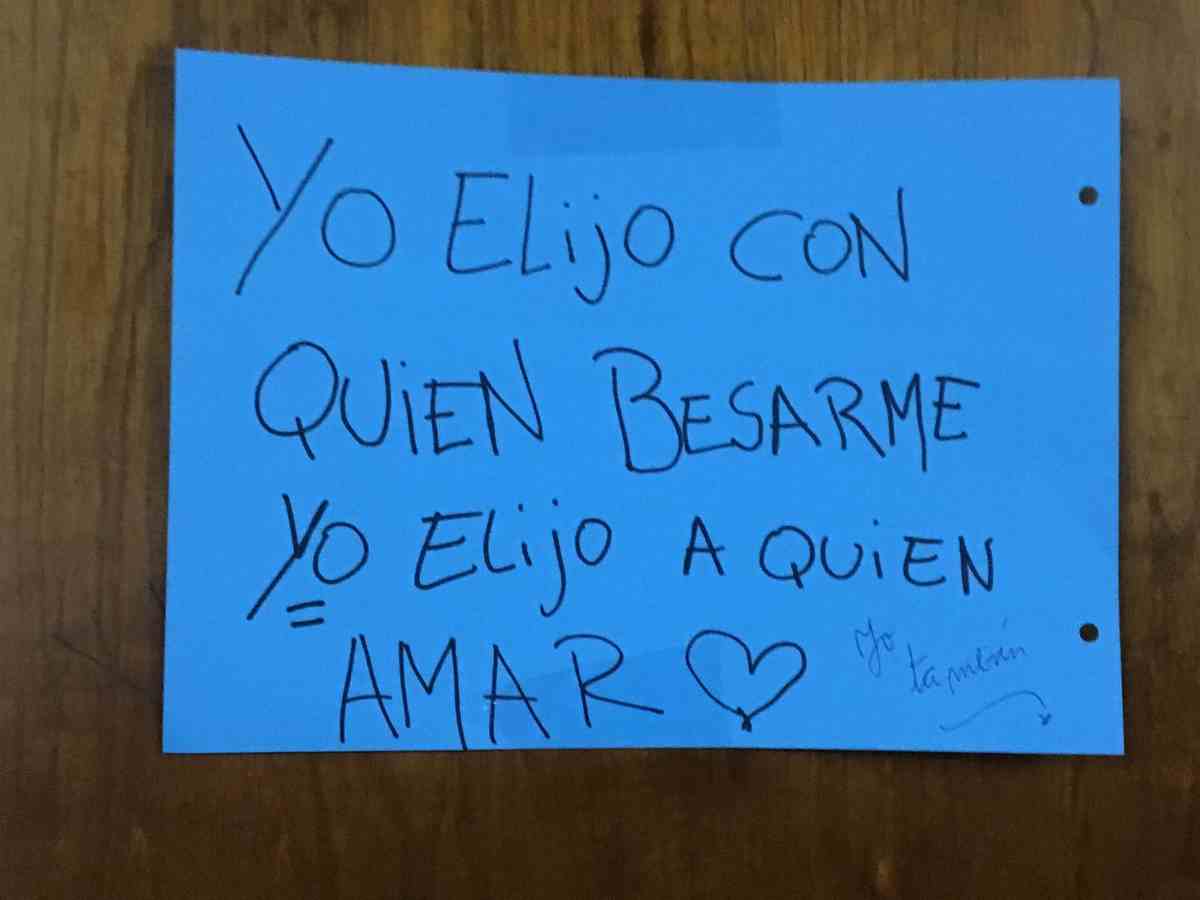 YO ELijO CON
QUiEN BESARME
YO ELijO A QUiEN
AMAR ♡
Yo
también